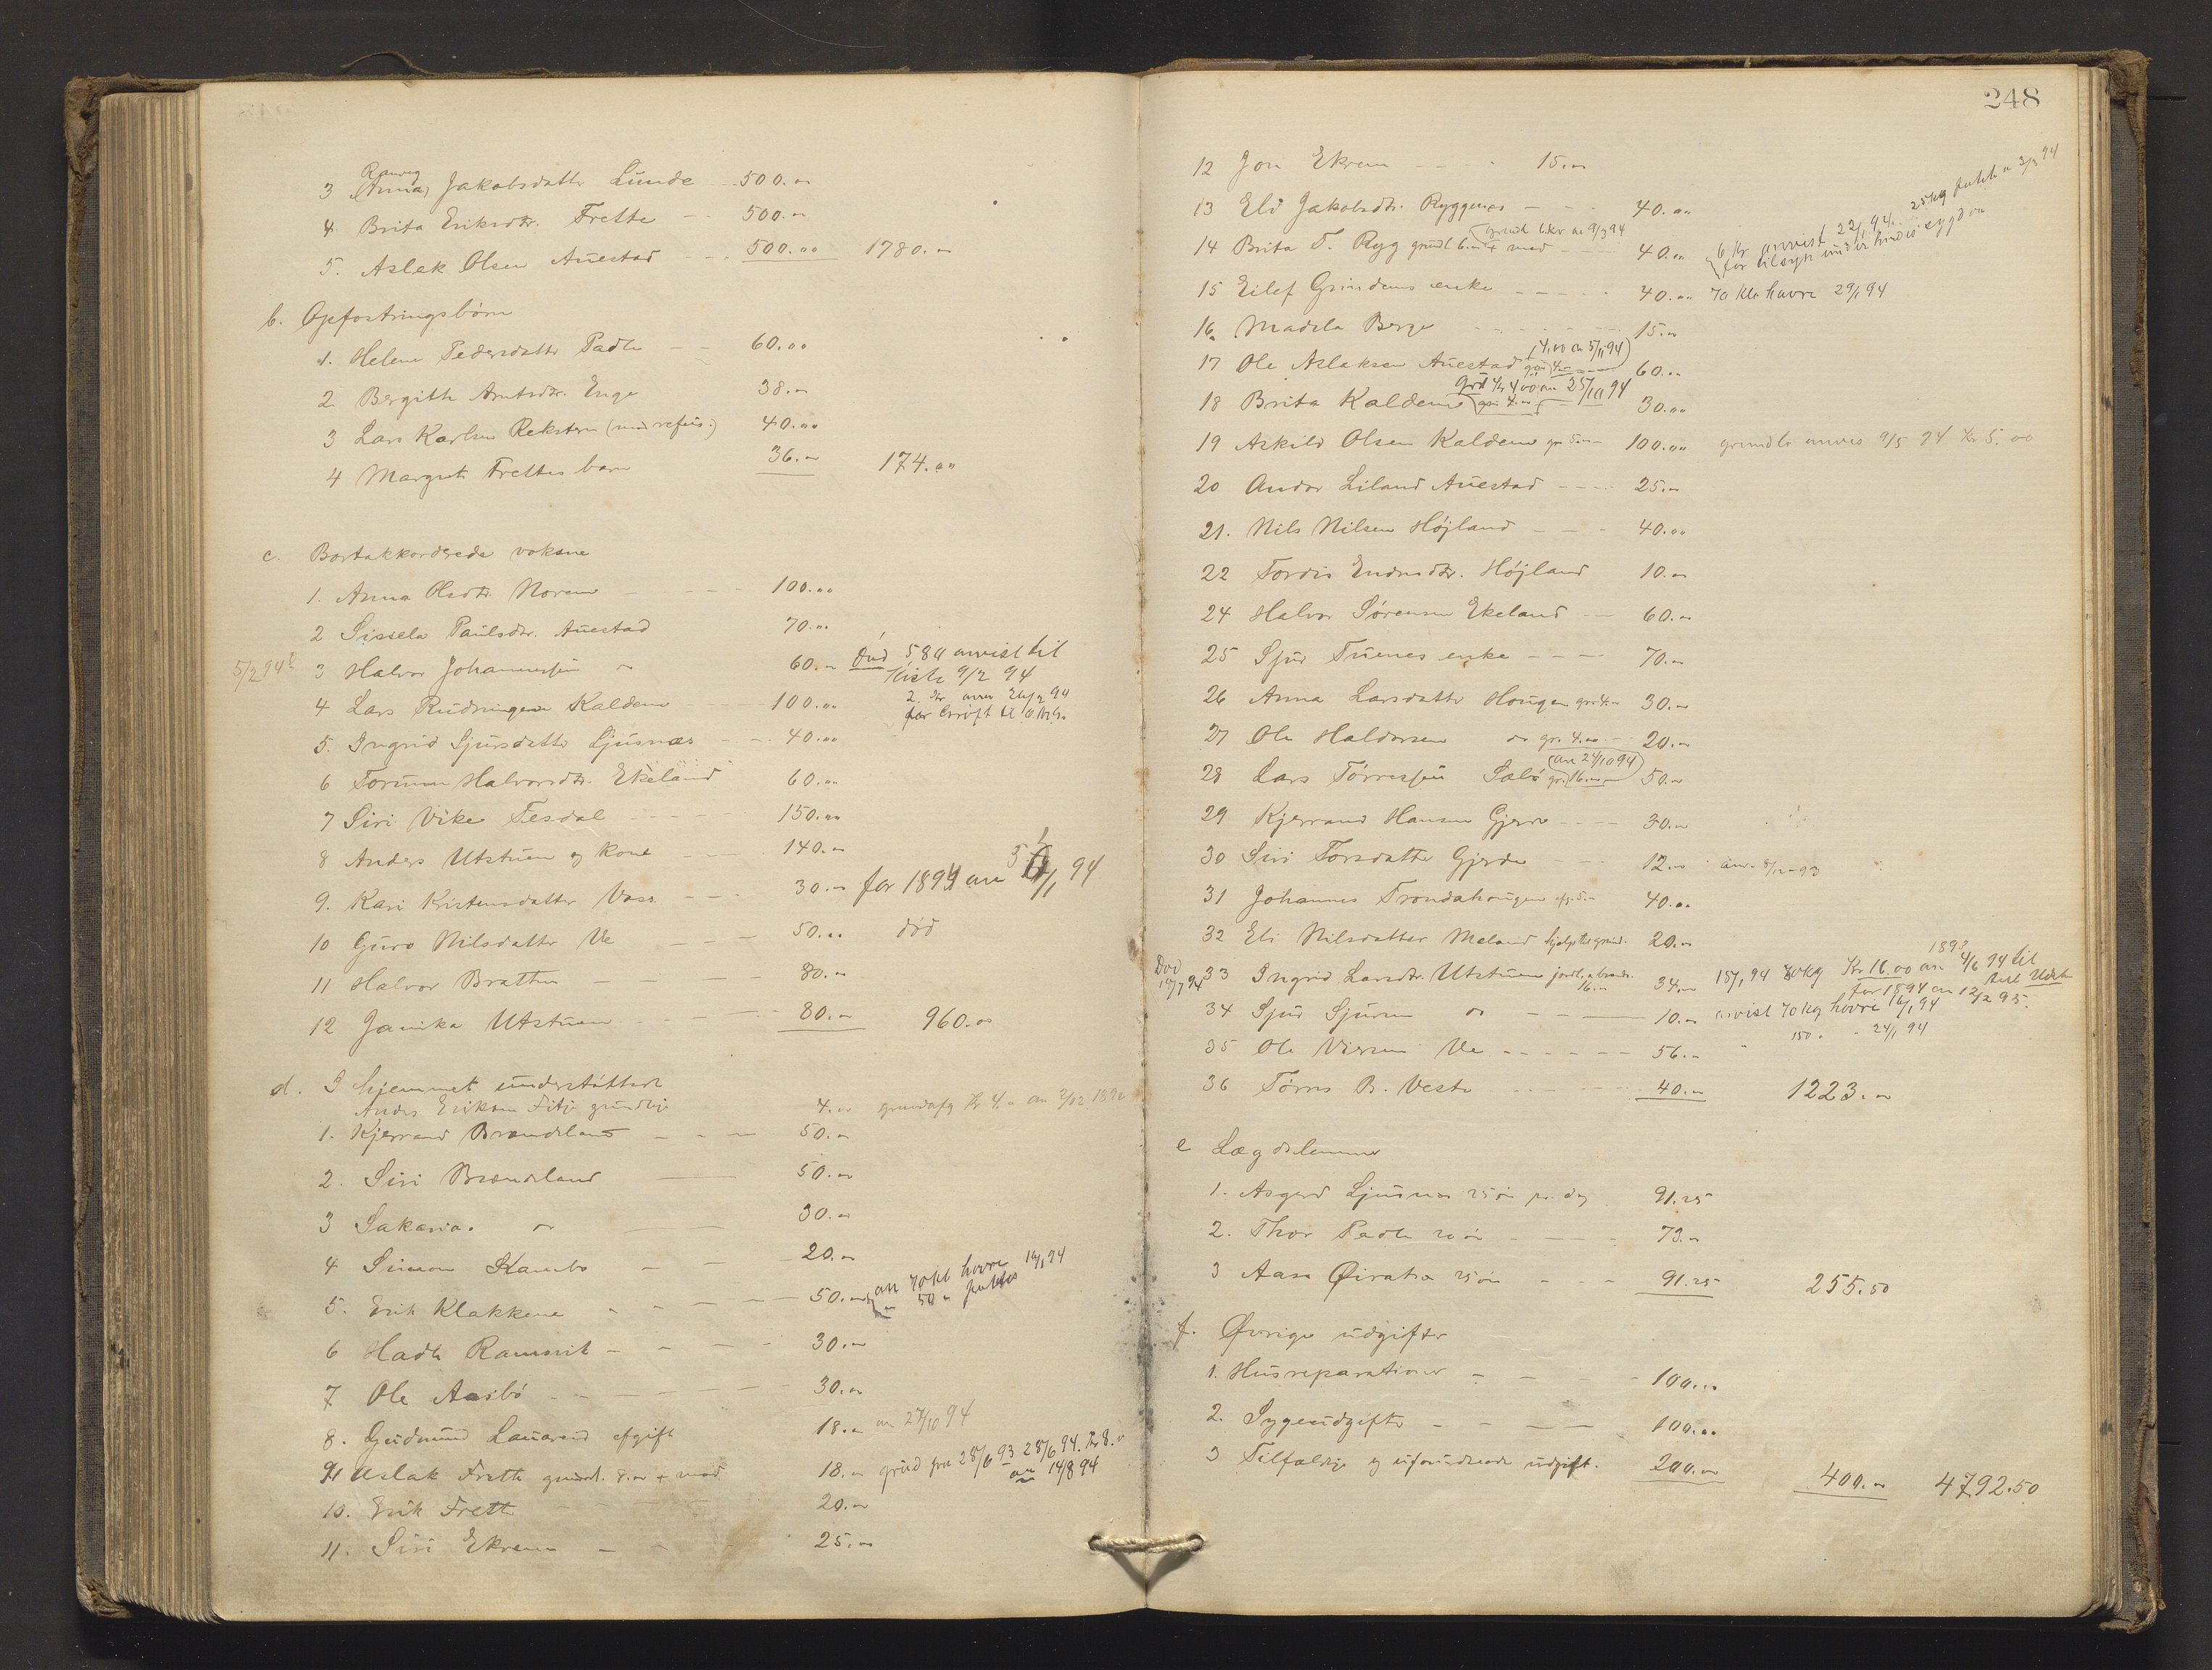 Ranveig
3 (Anna) Jakobsdatter Lunde - 500.00
4 Brita Eriksdtr. Frette - 500.00
5. Aslak Olsen Auestad - - 500.00 1780.00
b. Opfostringsbørn
1. Helene Pedersdatter Padle - - 60.00
2 Bergithe Arntsdtr. Enge 38.00
3 Lars Karlsen Reksteren (med refus.) 40.00
4 Margrete Frettes barn 36.00 174.00
c. Bortakkorderede voksne
1. Anna Olsdtr. Norem - - - 100.00
2 Sissela Paulsdtr. Auestad 70.00
5/2 94 3 Halvor Johannessen " 60.00 Død 5,80 anvist til
kiste 9/2 94
4 Lars Rudningen Kaldem - - 100.00 2 kr anv 26/2 94
for
5. Ingrid Sjursdatter Ljusnæs - - 40.00
6 Torunn Halvorsdtr. Ekeland 60.00
7 Siri Vike Tesdal - - - - 150.00
8 Anders Utstuen og kone - - - 140.00
9. Kari Kristensdatter Vass. - - - 30.00 for 1894 an 5/1 94
10 Guro Nilsdatter Ve - - - 50.00 død
11 Halvor Bratten - - - - 80.00
12 Janika Utstuen - - - - 80.00 960.00
d. I hjemmet understøttede
Anders Eriksen Fitje grundleje 4.00 grundafg Kr 4.00 an
1. Kjerrand Brandeland - - - 50.00
2. Siri Brandeland - 50.00
3 Sakarias " - 30.00
4 Simon Kambe - - - 20.00
5. Erik Klakkene - - - - 50.00 an 70 kl havre 16/1 94
" 50 " potetes
6 Hadle Ramsvik - - - - 30.00
7 Ole Aasbö - - - - - 30.00
8. Gudmund Lauareid afgift 18.00 an 27/10 94
9 Aslak Frette grundl. 8.00 + mad 18.00 grund fra 28/6 93 28/6 94. Kr 8.00
an 14/8 94
10. Erik Frette 20.00
11. Siri Ekrem - - 25.00
248
12 Jon Ekrem - - - 15.00
13 Eli Jakobsdtr. Ryggenes - - - 40.00
grundl 6 kr an 9/3 94
14 Brita T. Ryg grundl 6.00 + mad - - 40.00 6 kr anvist 22/1 94. 25 kg potet " 3/3 94
for tilsyn under hendes sygdom
15 Eilef Grindens enke - - - - 40.00 70 kl. havre 29/1 94
16 Madela Berge - - - - - 15.00
(4,00 an 5/11 94)
17 Ole Aslaksen Auestad gru 4.00 - 60.00
grd Kr 4 00 an 25/10 94
18 Brita Kaldem gr. 4.00 - 30.00
19 Askild Olsen Kaldem gr 5.00 - 100.00 grundle anvis 9/5 94 Kr 5.00
20 Andor Liland Auestad - - - 25.00
21. Nils Nilsen Højland - - - 40.00
22 Tordis Endresdtr. Højland 10.00
24 Halvor Sørensen Ekeland - - 60.00
25 Sjur Tuenes enke - - - 70.00
26 Anna Larsdatter Hougen gr 4.00 30.00
27 Ole Haldorsen " gr. 4.00 - - 20.00
(an 24/10 94)
28 Lars Tørresen Sælø gr. 16.00 50.00
29 Kjerrand Hansen Gjerde - - - 30.00
30 Siri Torsdatter Gjerde - - - 12.00 anv. 8/12 93
31 Johannes Trondahougen afg. 5.00 40.00
32 Eli Nilsdatter Meland hjælp til grund. 20.00
Død
19/7 94 33 Ingrid Larsdtr. Utstuen jordl. 16.00 34.00 15/1 94 80 kg Kr 16.00 an 1893 4/6 94 til
for 1894 an 12/2 95.
34 Sjur Sjursen " - - - 10.00 anvist 70 kg havre 16/1 94
35 Ole Viersen Ve - - - - - 56.00 " 150 " - 24/1 94
36 Tørres B. Veste - - - - - 40.00 1223.00
e Lægdslemmer
1. Asgerd Ljusnæs 25 øre pr. dag 91.25
2. Thor Padle 20 øre - - - - 73.00
3 Aasa Øivatræ 25 øre - - - 91.25 255.50
f. Øvrige udgifter
1. Husreparationer - - - - 100.00
2. Sygeudgifter - - - - 100.00
3 Tilfældige og uforudseede udgift. 200.00 400.00 4792.50